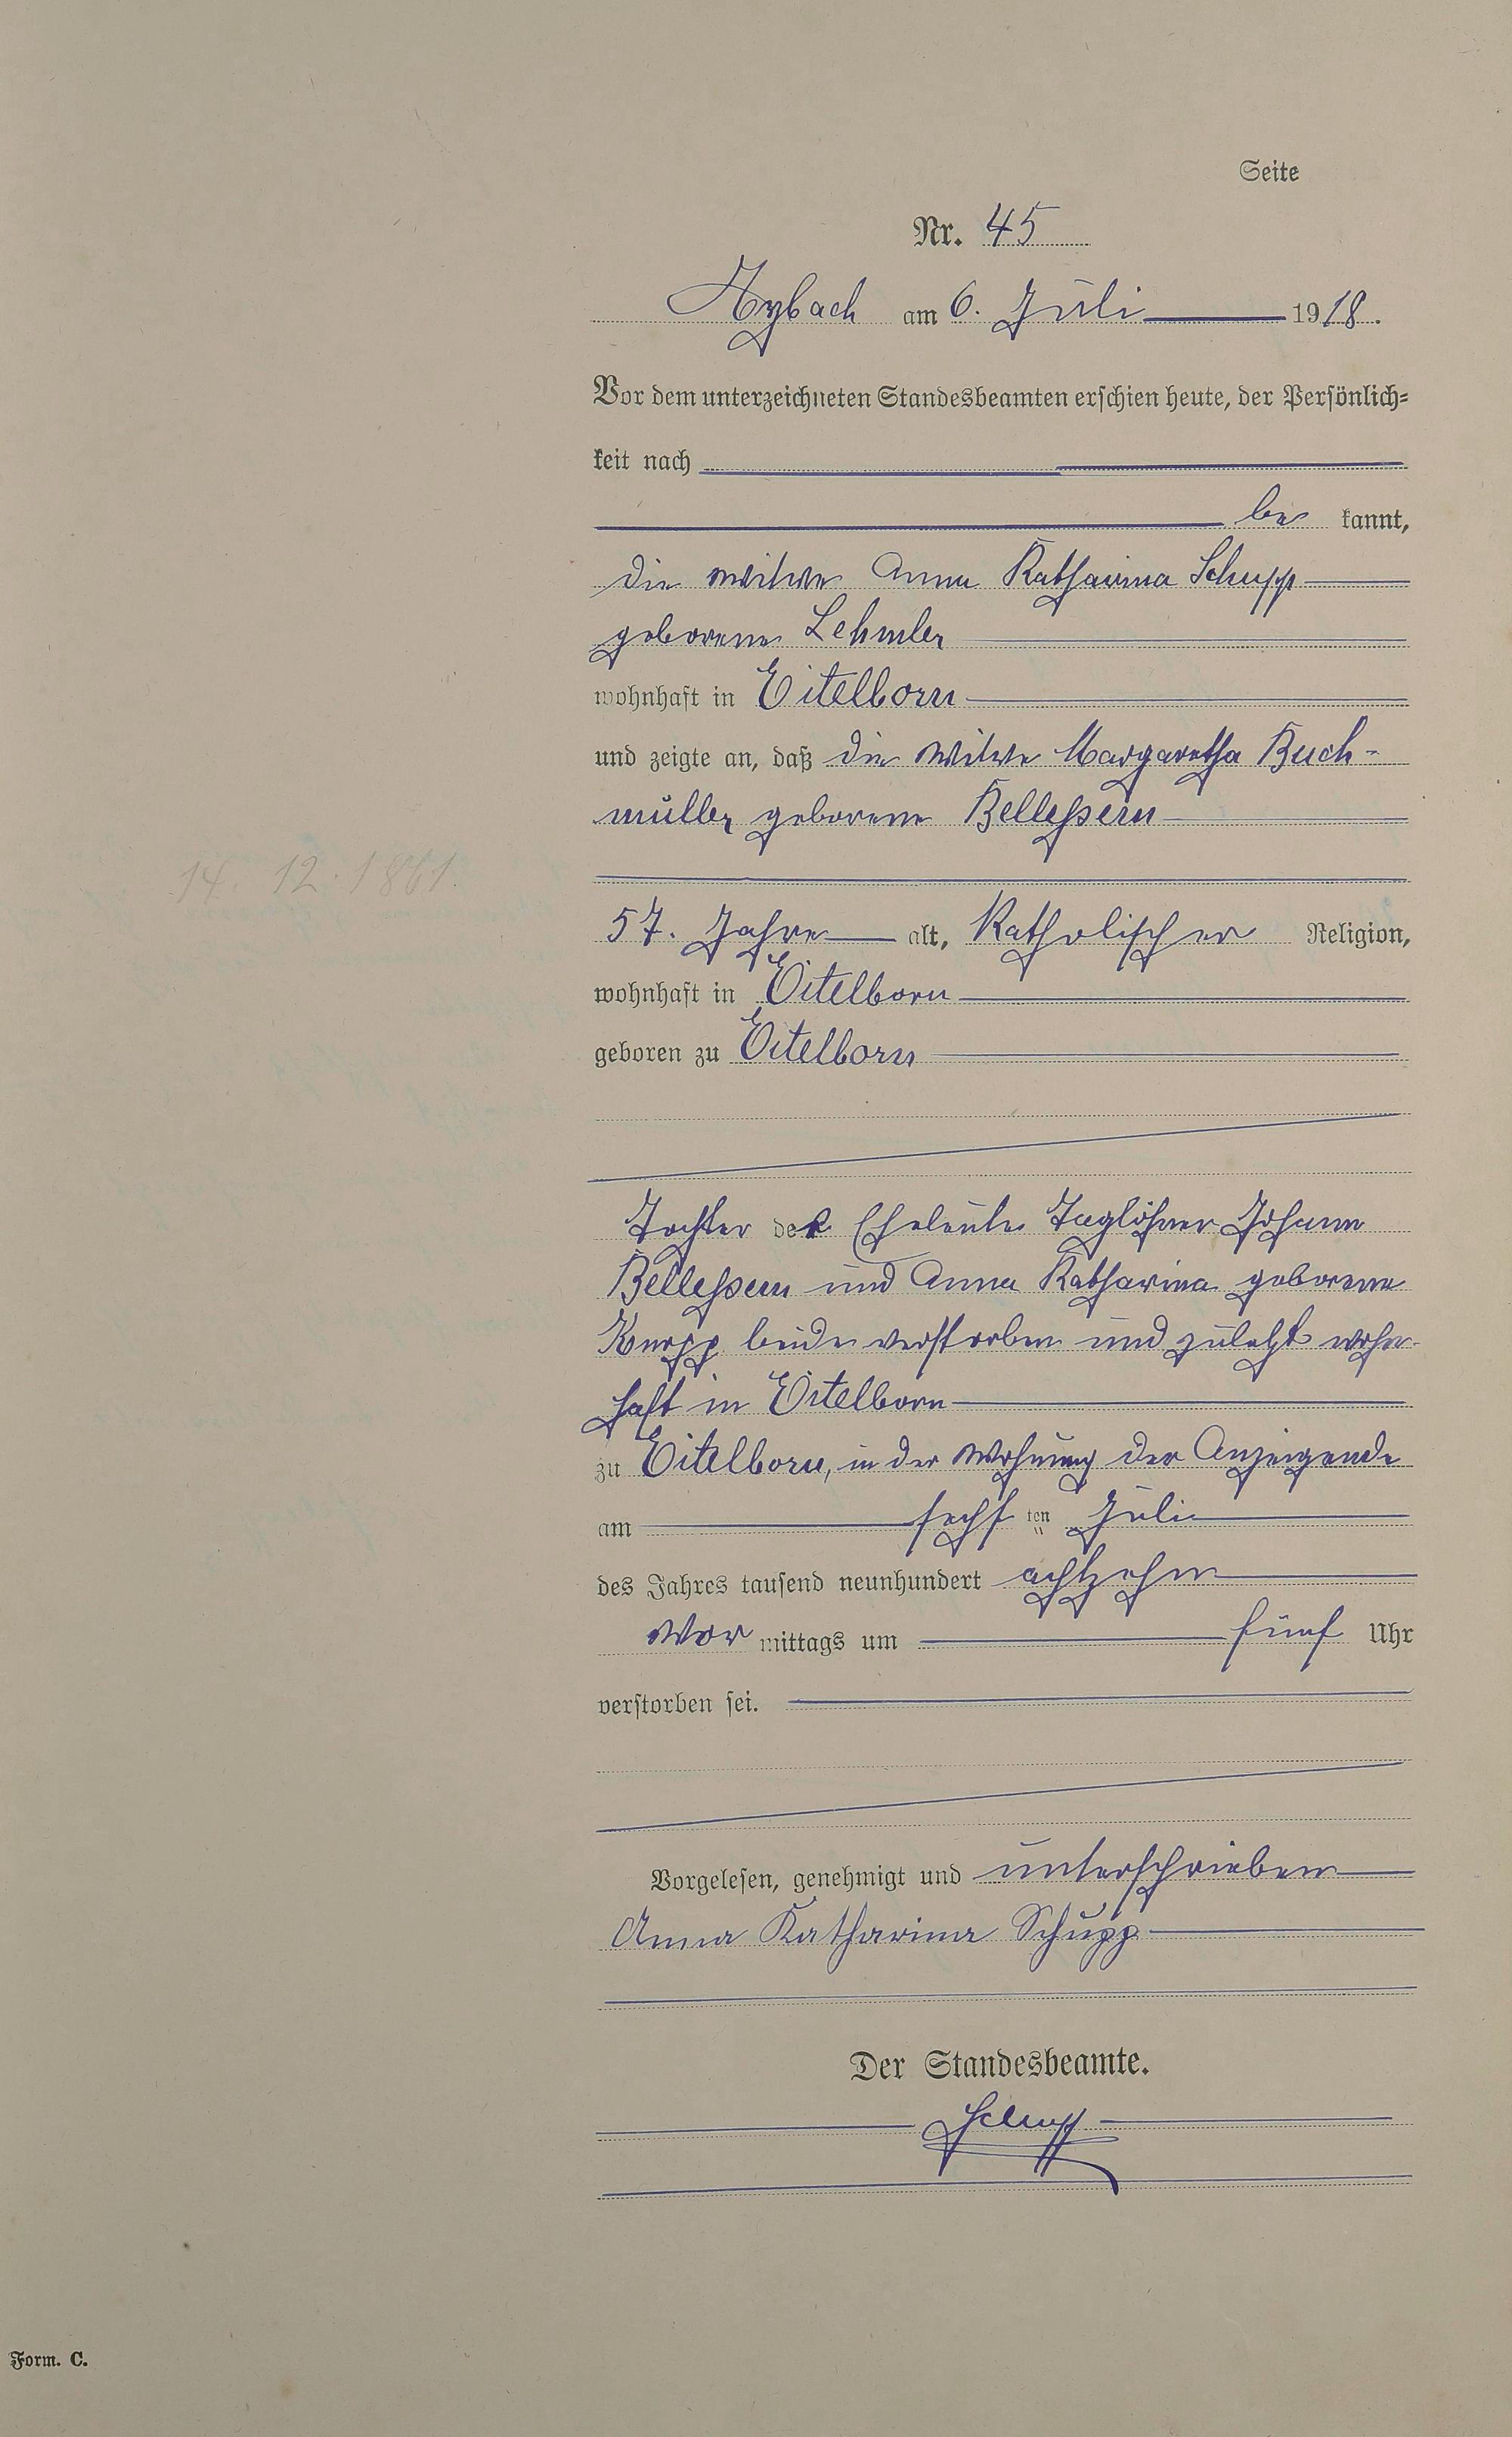 Seite
Nr. 45
Arzbach am 6. Juli 1918.
Vor dem unterzeichneten Standesbeamten erschien heute, der Persönlich=
keit nach
be kannt,
die Witwe Anna Katharina Schupp
geborene Lehmler
wohnhaft in Eitelborn
und zeigte an, daß die Witwe Margaretha Buch-
müller geborene Belleßem
14. 12. 1861.
57. Jahre alt, Katholischer Religion,
wohnhaft in Eitelborn
geboren zu Eitelborn
Tochter der Eheleute Taglöhner Johann
Belleßem und Anna Katharina geborene
Knopp beide verstorben und zuletzt wohn-
haft in Eitelborn
zu Eitelborn, in der Wohnung der Anzeigende
am sechs ten Juli
des Jahres tausend neunhundert achtzehn
Vor mittags um fünf Uhr
verstorben sei.
Vorgelesen, genehmigt und unterschrieben
Anna Katharina Schupp
Der Standesbeamte.
Schupp
Form. C.